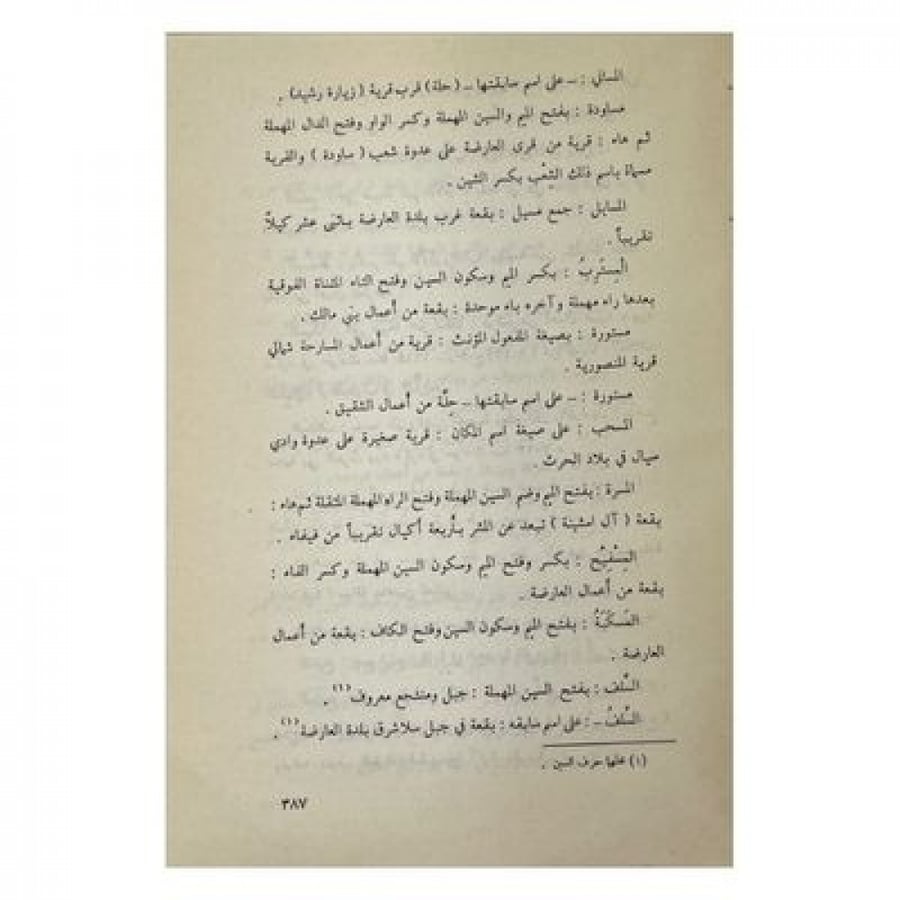 المسالي : – على اسم سابقتها – (حلة) قرب قرية (زيارة رشيد) .
مساودة : بفتح الميم والسين المهملة وكسر الواو وفتح الدال المهملة
ثم هاء : قرية من قرى العارضة على عدوة شعب (ساودة) والقرية
مسماة باسم ذلك الشِعْب بكسر الشين .
المسايل : جمع مسيل : بقعة غرب بلدة العارضة باثنى عشر كيلاً
تقريباً .
الْمِستَرِبُ : بكسر الميم وسكون السين وفتح التاء المثناة الفوقية
بعدها راء مهملة وآخره باء موحدة : بقعة من أعمال بني مالك .
مستورة : بصيغة المفعول المؤنث : قرية من أعمال المسارحة شمالي
قرية المنصورية .
مستورة : – على اسم سابقتها – حِلَّة من أعمال الشقيق .
المسحب : على صيغة اسم المكان : قرية صغيرة على عدوة وادي
صيال في بلاد الحرث .
المسرة : بفتح الميم وضم السين المهملة وفتح الراء المهملة المثقلة ثم هاء :
بقعة (آل امشينة) تبعد عن النشر بأربعة أكيال تقريباً من فيفاء .
المِسْفِيْح : بكسر وفتح الميم وسكون السين المهملة وكسر الفاء :
بقعة من أعمال العارضة .
المَسْكَبَةُ : بفتح الميم وسكون السين وفتح الكاف : بقعة من أعمال
العارضة .
السَّلف : بفتح السين المهملة : جبل ومنتجع معروف(١) .
السَّلفُ – : على اسم سابقه : بقعة في جبل سلا شرق بلدة العارضة(١) .
(١) محلها حرف السين .
٣٨٧